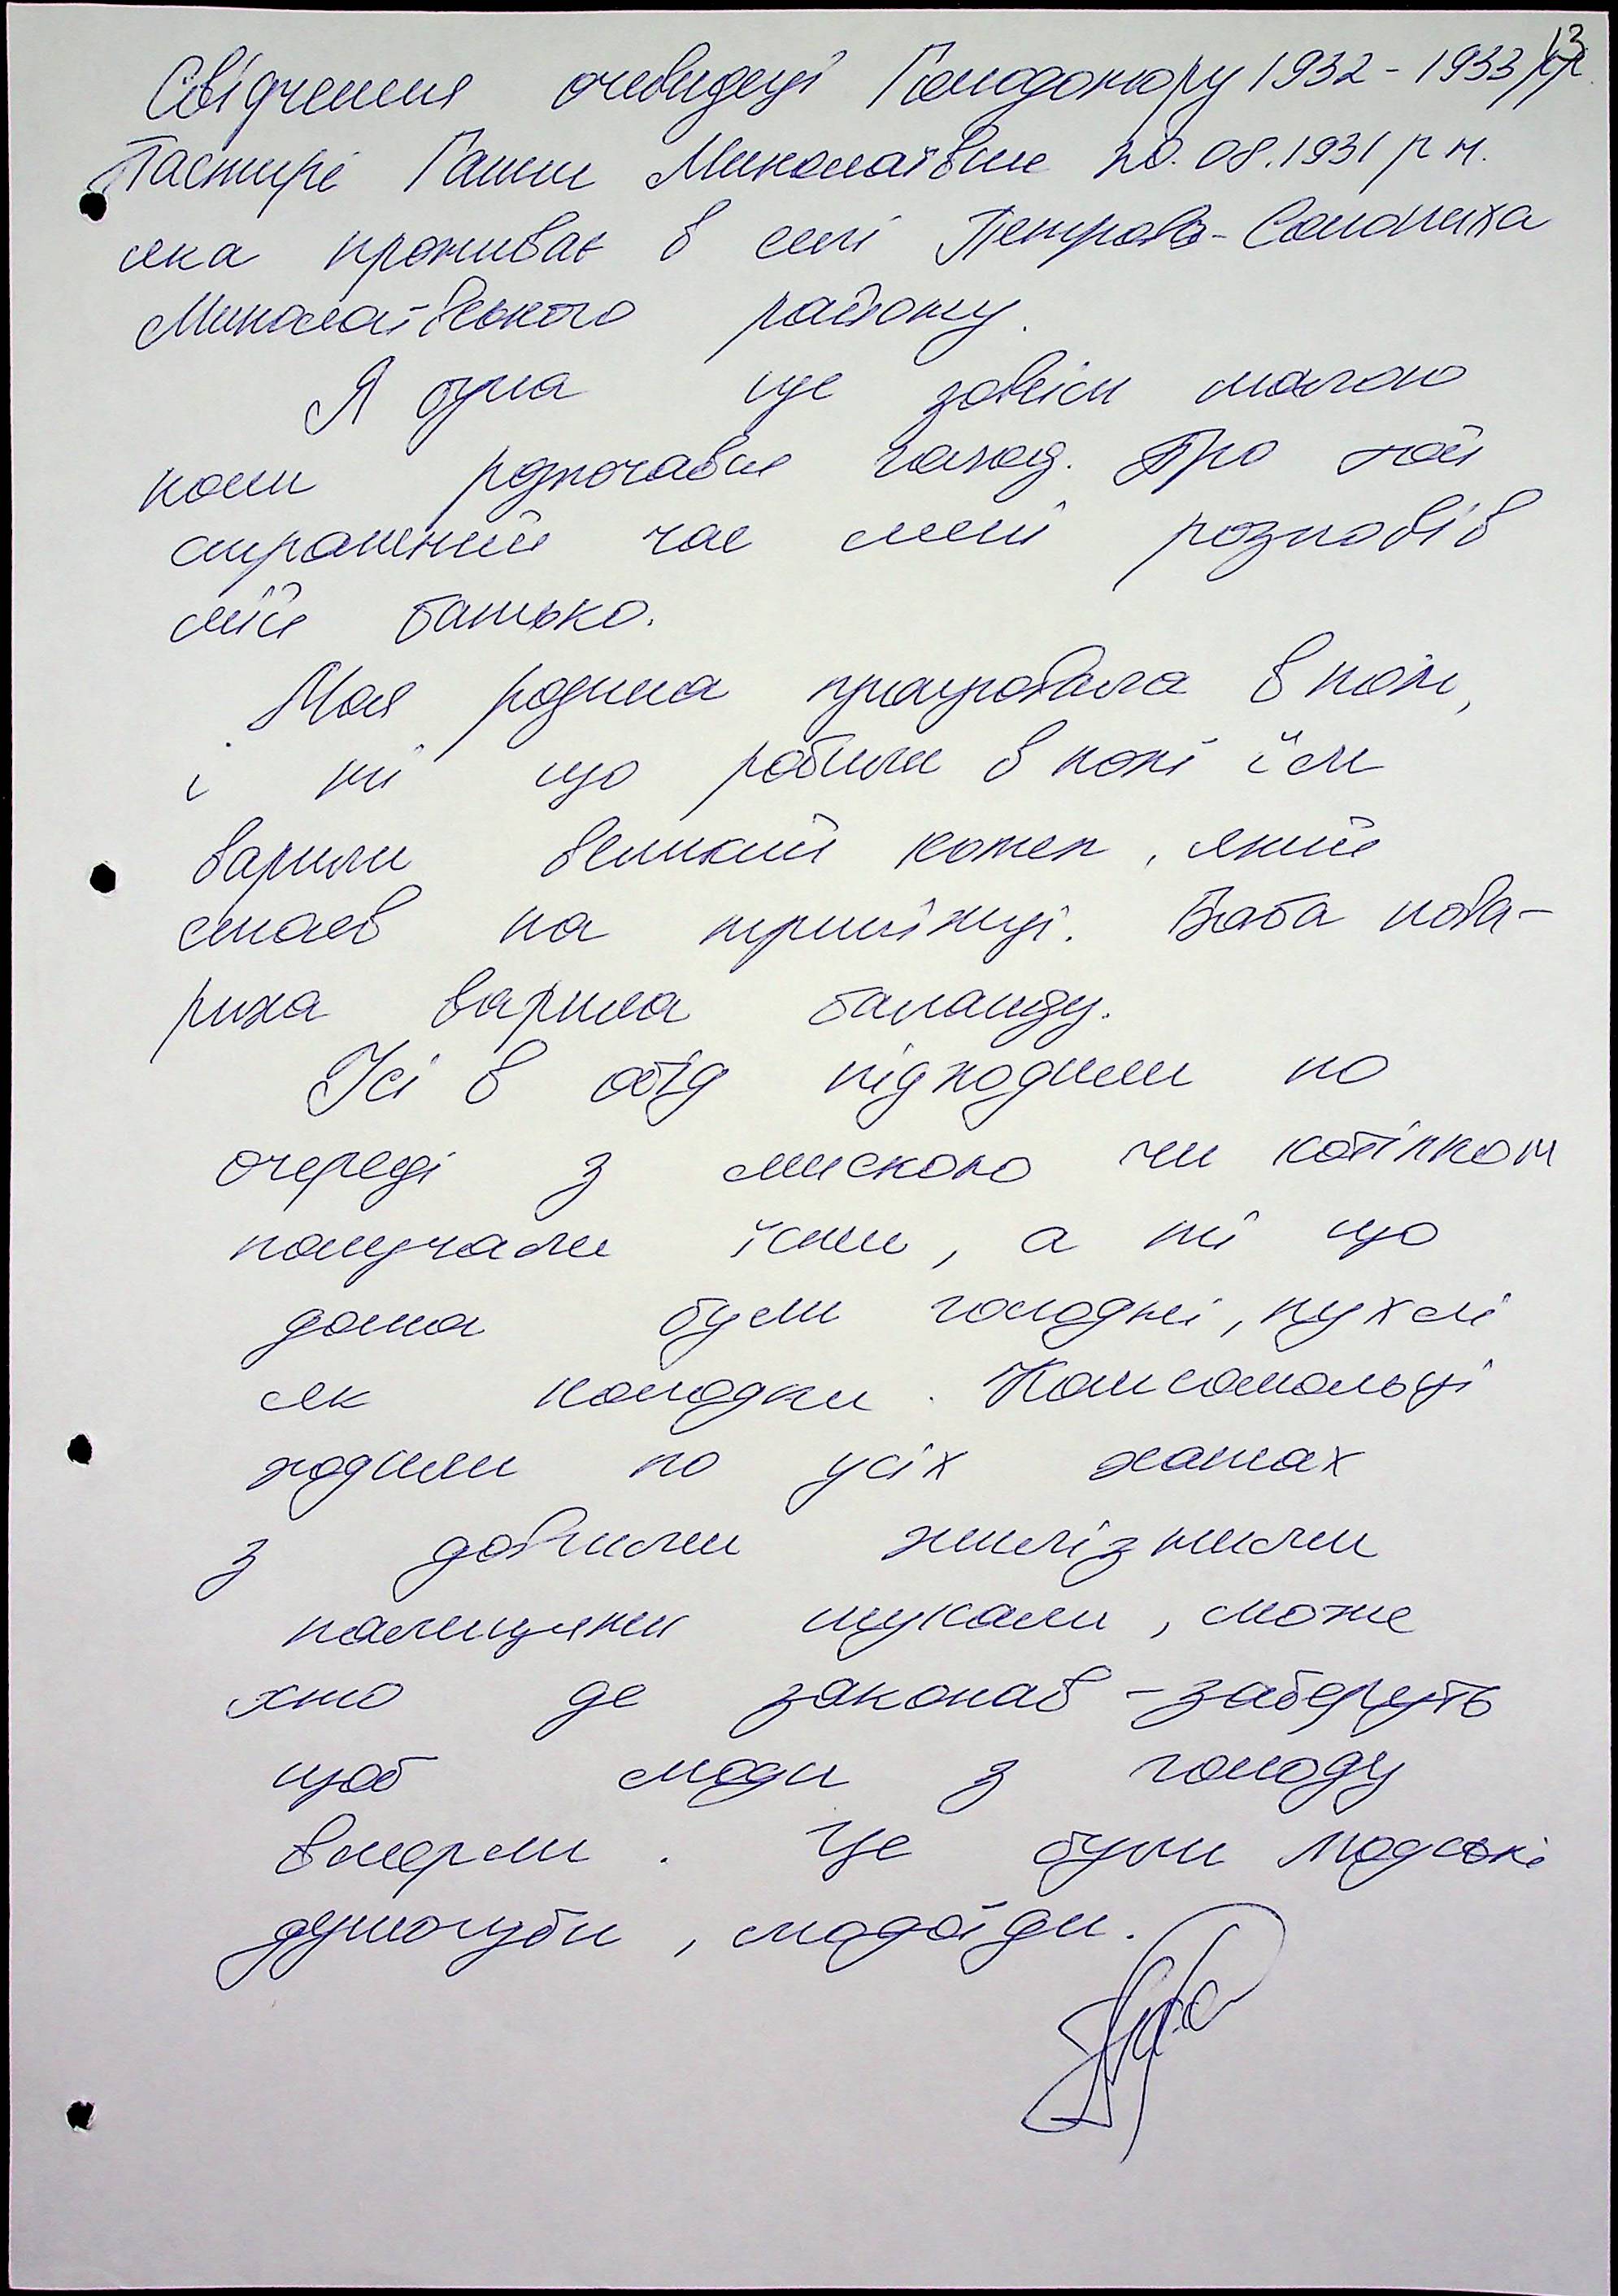 13
Свідчення очевидеці Голодомору 1932-1933 рр.
Пастирі Ганни Миколаївни 20.08.1931 р н.
яка проживає в селі Петрово-Солониха
Миколаївського району.
Я була ще зовсім малою
коли розпочався голод. Про той
страшний час мені розповів
мій батько.
Моя родина працювала в полі,
і ті що робили в полі їм
варили великий котел, який
стояв на триніжці. Баба пова-
риха варила баланду.
Усі в обід підходили по
очереді з мискою чи котілком
получали їсти, а ті що
дома були голодні, пухлі
як колодки. Комсомольці
ходили по усіх хатах
з довгими желізними
палицями шукали, може
хто де закопав - заберуть
щоб люди з голоду
вмерли. Це були людські
душогуби, людоїди.